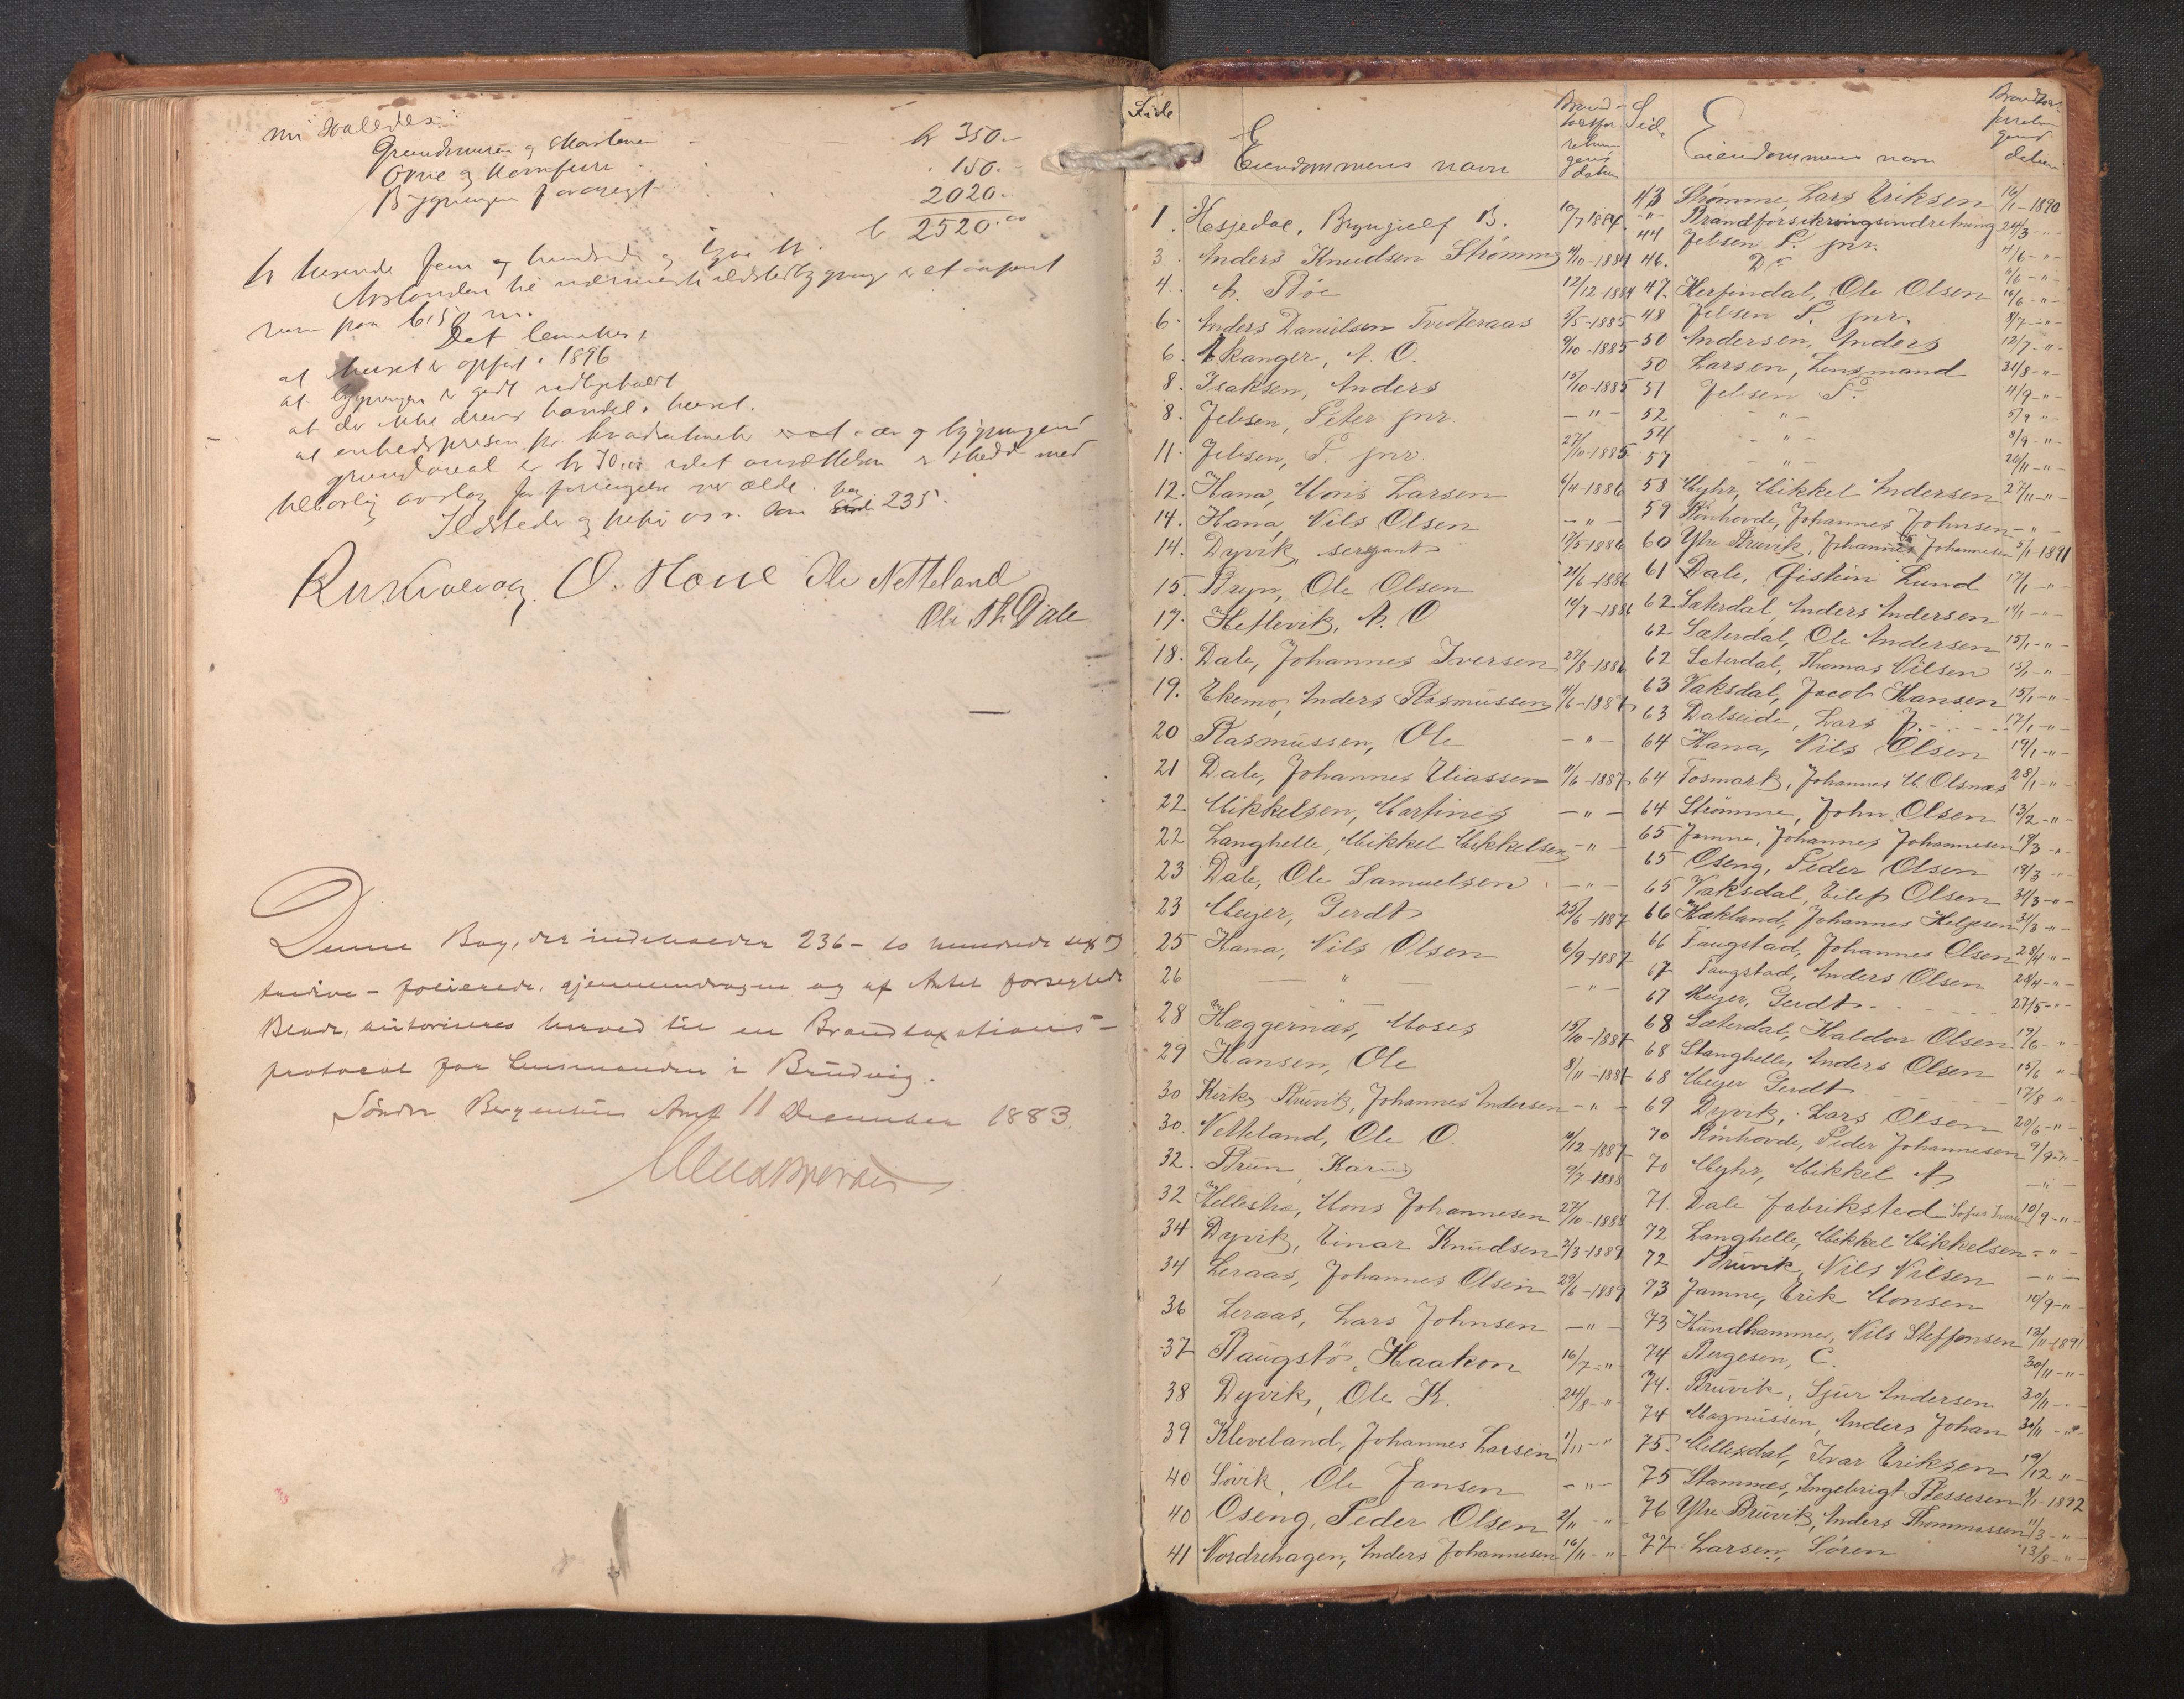 Grundmuren og Skorstenen kr 350.-
Ovne og Komfur 150.-
Bygningen forøvrigt 2020.-
kr 2520.00
to tusende fem hundrede og tyve kr.
rum paa 6,50 m.
Det bemerkes,
at huset er opført i 1896
at bygningen er godt vedligeholdt
at der ikke drives handel i huset.
at enhedsprisen pr kvadratmeter av bygningens
grundareal er kr 70,00 idet ansættelsen er skedd med
tilbørlig avslag for forringelse ved ælde.
Ildsteder og piper o s v. som 235.
O. Hove Ole Netteland
Ole Th. Dale
Denne Bog, der indeholder 236 - to hundrede sex og
tredive - folierede, gjennemdragne og af Amtet forseglede
Blade, autoriseres herved til en Brandtaxations-
protocol for Lensmanden i Brudvig.
Søndre Bergenhus Amt 11 December 1883.
Side Eiendommens navn Brandbesigtelsens datum
1. Hesjedal, Brynjulf B. 10/7 1884.
3. Anders Knudsen Strømme 4/10-1884
4. A. Bøe 12/12-1884
6. Anders Danielsen Tvedteraas 5/5-1885
6. Ekanger, A. O. 9/10-1885
8. Isaksen, Anders 15/10-1885
8. Jebsen, Peter jnr. -"-
11. Jebsen, P. jnr. 27/10-1885
12. Hana, Mons Larsen 6/4-1886
14. Hana, Nils Olsen -"-
14. Dyvik, sergant 17/5-1886
15. Bryn, Ole Olsen 21/6-1886
17. Heflevik, A. O 10/7-1886
18. Dale, Johannes Iversen 27/8-1886
19. Ekemo, Anders Rasmussen 4/6-1887
20 Rasmussen, Ole -"-
21 Dale, Johannes Eliassen 11/6-1887
22 Mikkelsen, Martines -"-
22 Langhelle, Mikkel Mikkelsen -"-
23 Dale, Ole Samuelsen -"-
23 Meyer, Gerdt 25/6-1887
25 Hana, Nils Olsen 6/9-1887
26 -"- -"-
28 Hæggernæs, Moses 15/10-1887
29 Hansen, Ole 8/11-1887
30 Kirke Bruvik, Johannes Andersen -"-
30. Netteland, Ole O. 10/12-1887
32. Brun, Karin 9/7-1888
32 Hellestræ, Mons Johannesen 27/10-1888
34 Dyvik, Einar Knudsen 2/3-1889
34 Leraas, Johannes Olsen 29/6-1889
36 Leraas, Lars Johnsen -"-
37 Raugstø, Haakon 16/7-"-
38 Dyvik, Ole K. 24/8-"-
39 Kleveland, Johannes Larsen 1/11-"-
40 Søvik, Ole Jansen -"-
40 Oseng, Peder Olsen 2/11-"-
41 Nordrehagen, Anders Johannesen 16/11-"-
Sid. Eiendommens navn
43 Strømme, Lars Eriksen 16/1-1890
-"- Brandforsikringsindretning 24/3-"-
44 Jebsen P. jnr. 4/6-"-
46. Do 6/6-"-
47. Herfindal, Ole Olsen 16/6-"-
48 Jebsen P. jnr. 8/7-"-
50 Andersen, Anders 12/7-"-
50 Larsen, Lensmand 31/8-"-
51 Jebsen P. 4/9-"-
52 -"- 5/9-"-
54 -"- 8/9-"-
57 -"- 26/11-"-
58 Myhr, Mikkel Andersen 27/11-"-
59 Rønhovde, Johannes Johnsen -"-
60 Ytre Bruvik, Johannes Johannesen 5/1-1891
61 Dale, Gistein Lund 17/1-"-
62 Sæterdal, Anders Andersen 14/1-"-
62 Sæterdal, Ole Andersen 15/1-"-
62 Sæterdal, Thomas Nilsen 15/1-"-
63 Vaksdal, Jacob Hansen 15/1-"-
63 Dalseide, Lars J. 17/1-"-
64 Hana, Nils Olsen 19/1-"-
64 Fosmark, Johannes M. Olsnæs 28/1-"-
64 Strømme, John Olsen 13/2-"-
65 Jamne, Johannes Johannesen 19/3-"-
65 Oseng, Peder Olsen 19/3-"-
65 Vaksdal, Eilef Olsen 31/3-"-
66 Hækland, Johannes Helgesen 31/3-"-
66 Taugstad, Johannes Olsen 28/4-"-
67 Taugstad, Anders Olsen 28/4-"-
67 Meyer, Gerdt 27/5-"-
68 Sæterdal, Haldor Olsen 19/6-"-
68 Stanghelle, Anders Olsen 15/6-"-
68 Meyer Gerdt 17/8-"-
69 Dyvik, Lars Olsen 20/6-"-
70 Rønhovde, Peder Johannesen 9/9-"-
70 Myhr, Mikkel A -"-
71 Dale fabriksted Sofus Iversen 10/9-"-
72 Langhelle, Mikkel Mikkelsen -"-
72 Bruvik, Nils Nilsen -"-
73 Jamne, Erik Monsen 10/9-"-
73 Hundhammer, Nils Steffensen 13/11-1891
74 Bergesen, C. 30/11-"-
74. Bruvik, Sjur Andersen 30/11-"-
74 Magnussen, Anders Johan 30/11-"-
75. Mellesdal, Ivar Eriksen 19/12-"-
75 Stamnæs, Ingebrigt Bessesen 9/1-1892
76 Ytre Bruvik, Anders Thommassen 11/3-"-
77 Larsen, Søren 13/8-"-